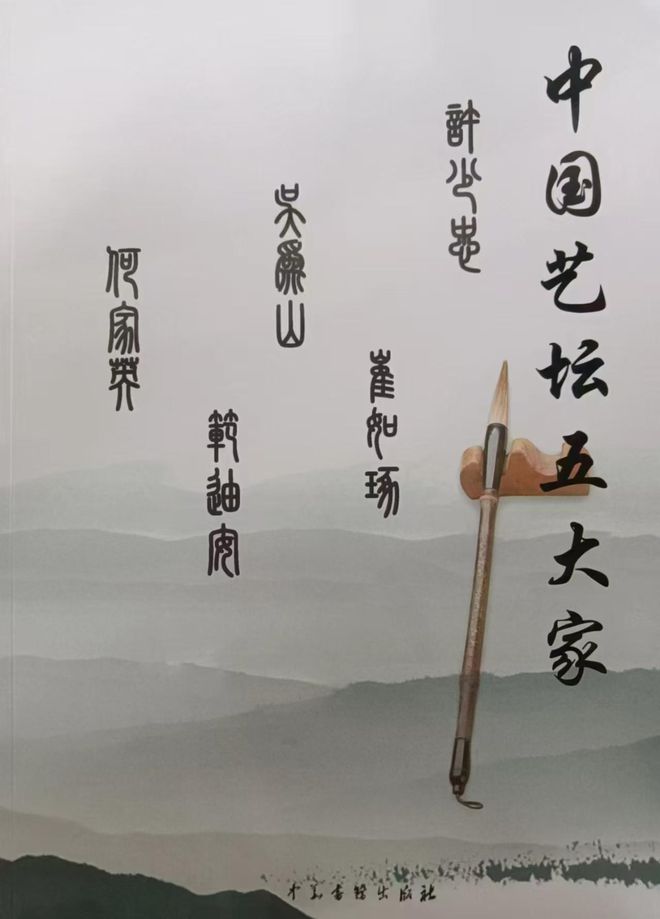 中国艺坛五大家
許少忠
崔如琢
吳為山
範迪安
何家英
中美书籍出版社